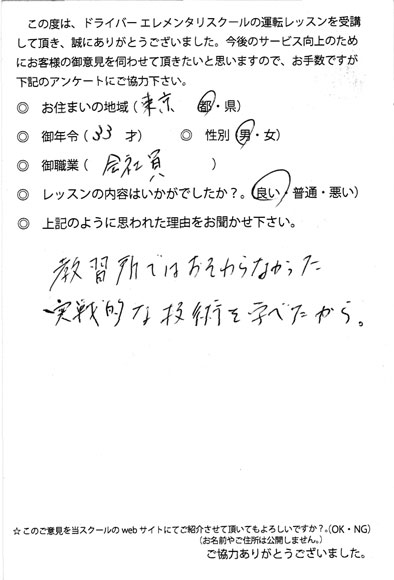 この度は、ドライバーエレメンタリスクールの運転レッスンを受講
して頂き、誠にありがとうございました。今後のサービス向上のため
にお客様の御意見を伺わせて頂きたいと思いますので、お手数ですが
下記のアンケートにご協力下さい。
◎ お住まいの地域（東京 都・県）
◎ 御年令（33 才） ◎ 性別（男・女）
◎ 御職業（会社員）
◎ レッスンの内容はいかがでしたか？。（良い・普通・悪い）
◎ 上記のように思われた理由をお聞かせ下さい。
教習所ではおそわらなかった
実戦的な技術を学べたから。
☆このご意見を当スクールの web サイトにてご紹介させて頂いてもよろしいですか？。（OK・NG）
（お名前やご住所は公開しません。）
ご協力ありがとうございました。